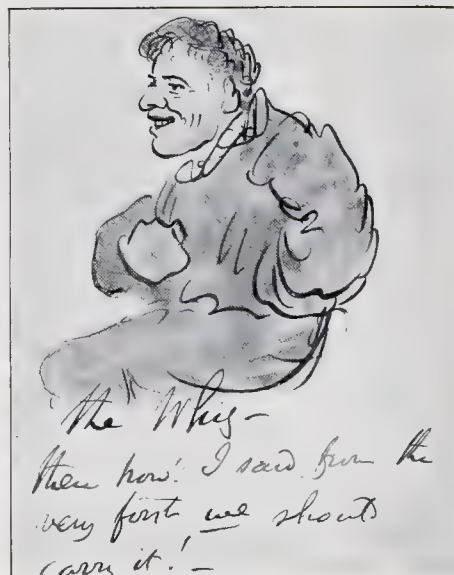 The Whig –
then now! I said from the
very first we should
carry it! –